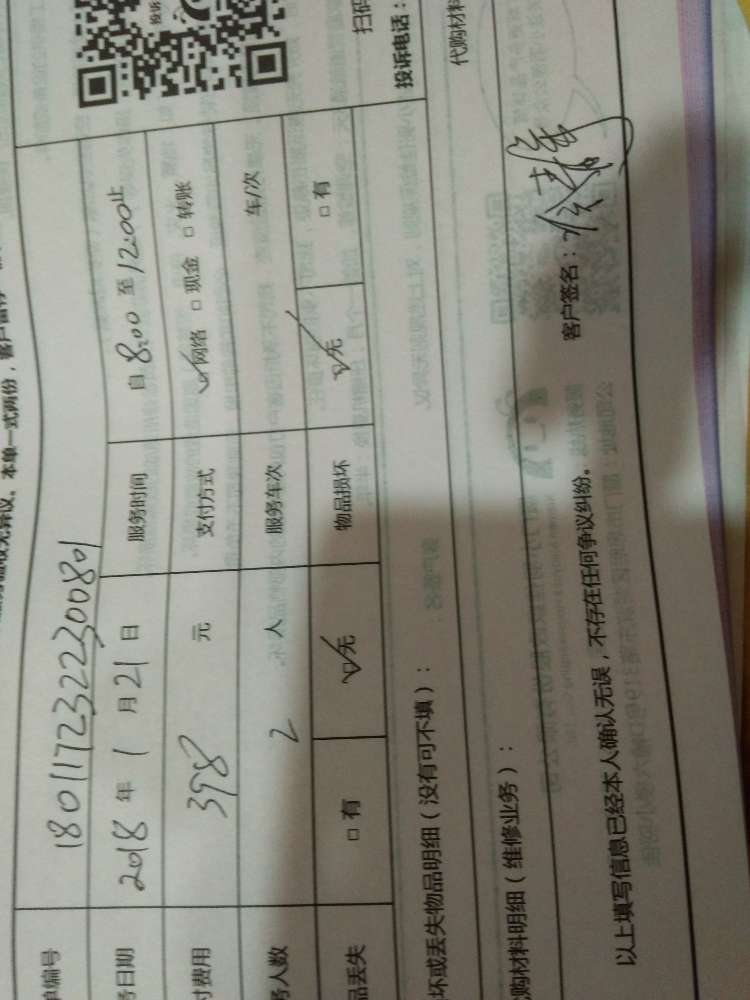 服务验收无异议。本单一式两份，客户留存一
单编号 1801172322300801
务日期 2018 年 1 月 21 日 服务时间 自 8:00 至 12:00 止
付费用 398 元 支付方式 ☑网络 □现金 □转账
务人数 2 人 服务车次 车/次
品丢失 □有 ☑无 物品损坏 ☑无 □有
扫码
投诉
坏或丢失物品明细（没有可不填）： 投诉电话：
购材料明细（维修业务）： 代购材料
以上填写信息已经本人确认无误，不存在任何争议纠纷。 客户签名：